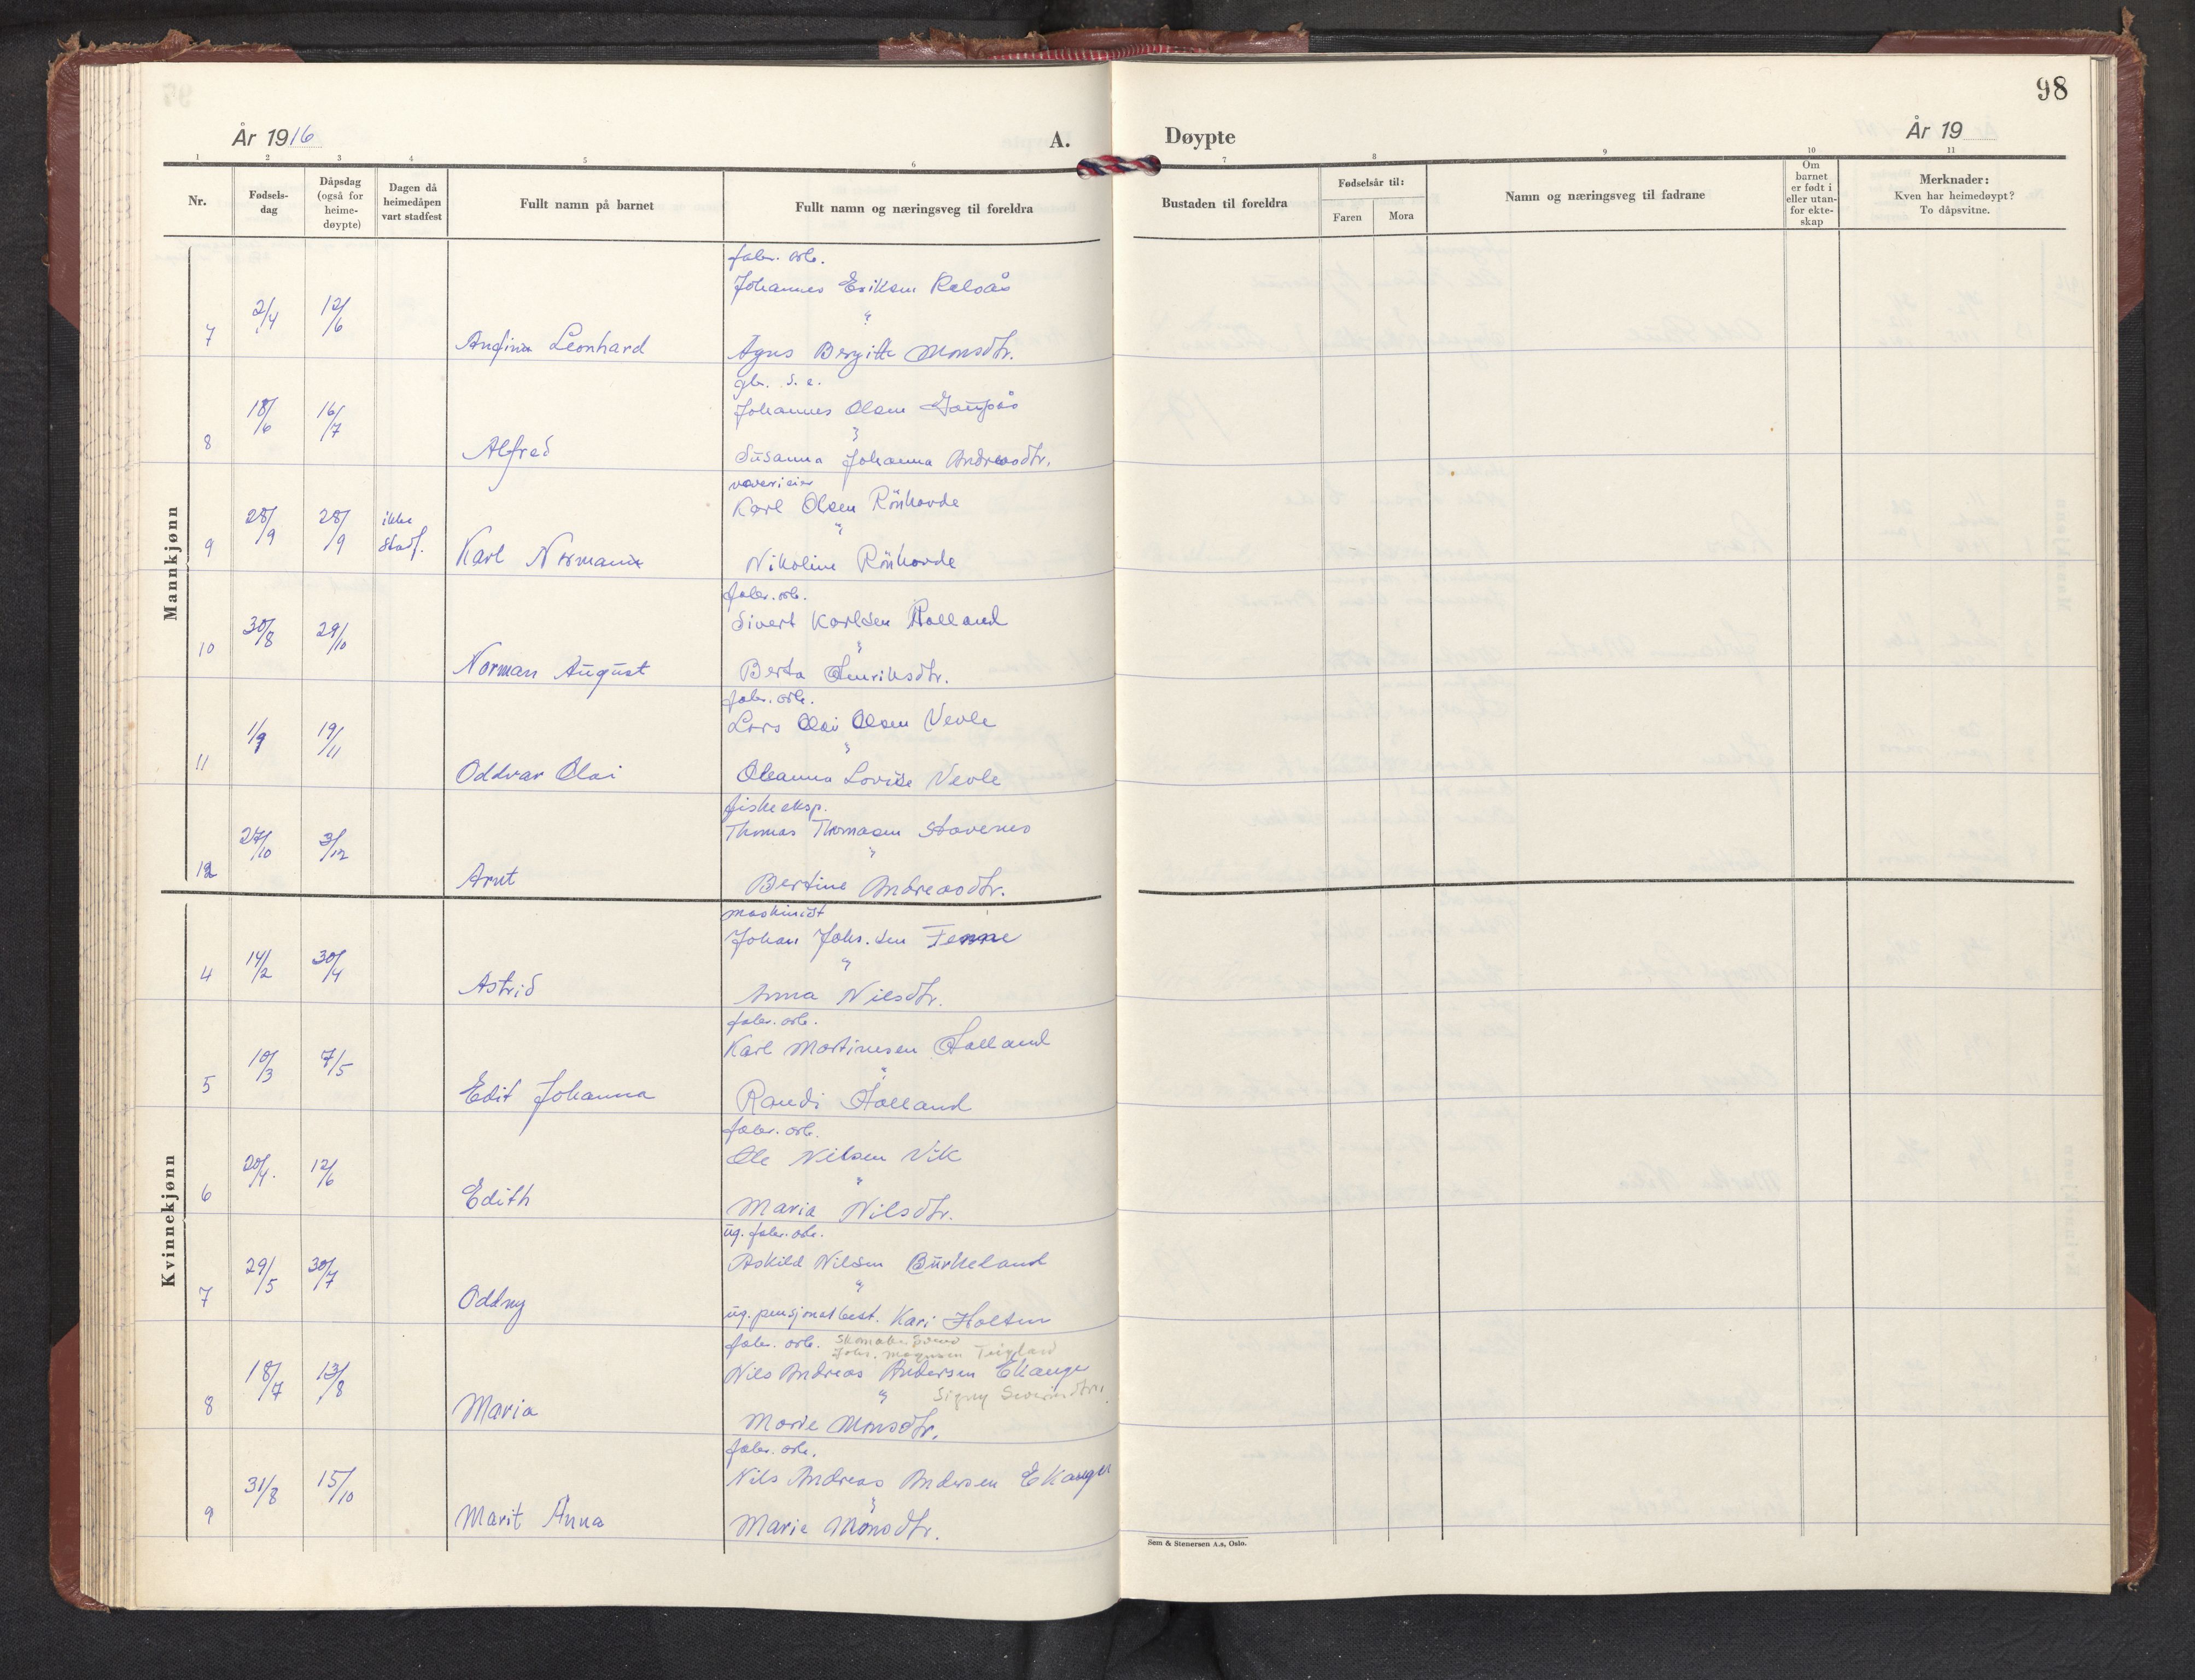 98
År 1916
A.
Døypte
År 19
1 2 3 4 5 6 7 8 9 10 11
Nr.
Fødsels-
dag
Dåpsdag
(også for
heime-
døypte)
Dagen då
heimedåpen
vart stadfest
Fullt namn på barnet
Fullt namn og næringsveg til foreldra
Bustaden til foreldra
Fødselsår til:
Faren
Mora
Namn og næringsveg til fadrane
Om
barnet
er født i
eller utan-
for ekte-
skap
Merknader:
Kven har heimedøypt?
To dåpsvitne.
Mannkjønn
fabr. arb.
Johannes Eriksen
7 2/4 12/6 Leonhard
Agnes Bergitte Monsdtr.
gbr. s. e.
Johannes Olsen Gaupås
8 18/6 16/7 Alfred
Susanna Johanna Andreasdtr.
Karl Olsen Rönhovde
9 28/9 28/9 ikke stadf. Karl Normann
Nikoline Rönhovde
fabr. arb.
Sivert Karlsen Holland
10 30/8 29/10 Norman August
Berta Henriksdtr.
fabr. arb.
Lars Olai Olsen Vevle
11 1/9 19/11 Oddvar Olai
Oleanna Lovise Vevle
fiskeeksp.
Thomas Thomasen Stavenes
12 27/10 3/12 Arnt
Bertine Andreasdtr.
Kvinnekjønn
maskinist
Johan Johs.sen Fenne
4 14/2 30/4 Astrid
Anna Nilsdtr.
fabr. arb.
Karl Martinusen Holland
5 10/3 7/5 Edit Johanna
Randi Holland
fabr. arb.
Ole Nilsen Vik
6 20/4. 12/6 Edith
Maria Nilsdtr.
ug. fabr. arb.
Askild Nilsen Burkeland
7 29/5 30/7 Oddny
ug. pensjonatbest. Kari Holsen
fabr. arb.
Johs. Magnusen Teigland
Nils Andreas Andersen Ekanger
Signy Severinsdtr.
8 18/7 13/8 Maria
Marie Monsdtr.
fabr. arb.
Nils Andreas Andersen Ekanger
9 31/8 15/10 Marit Anna
Marie Monsdtr.
Sem & Stenersen A.s, Oslo.